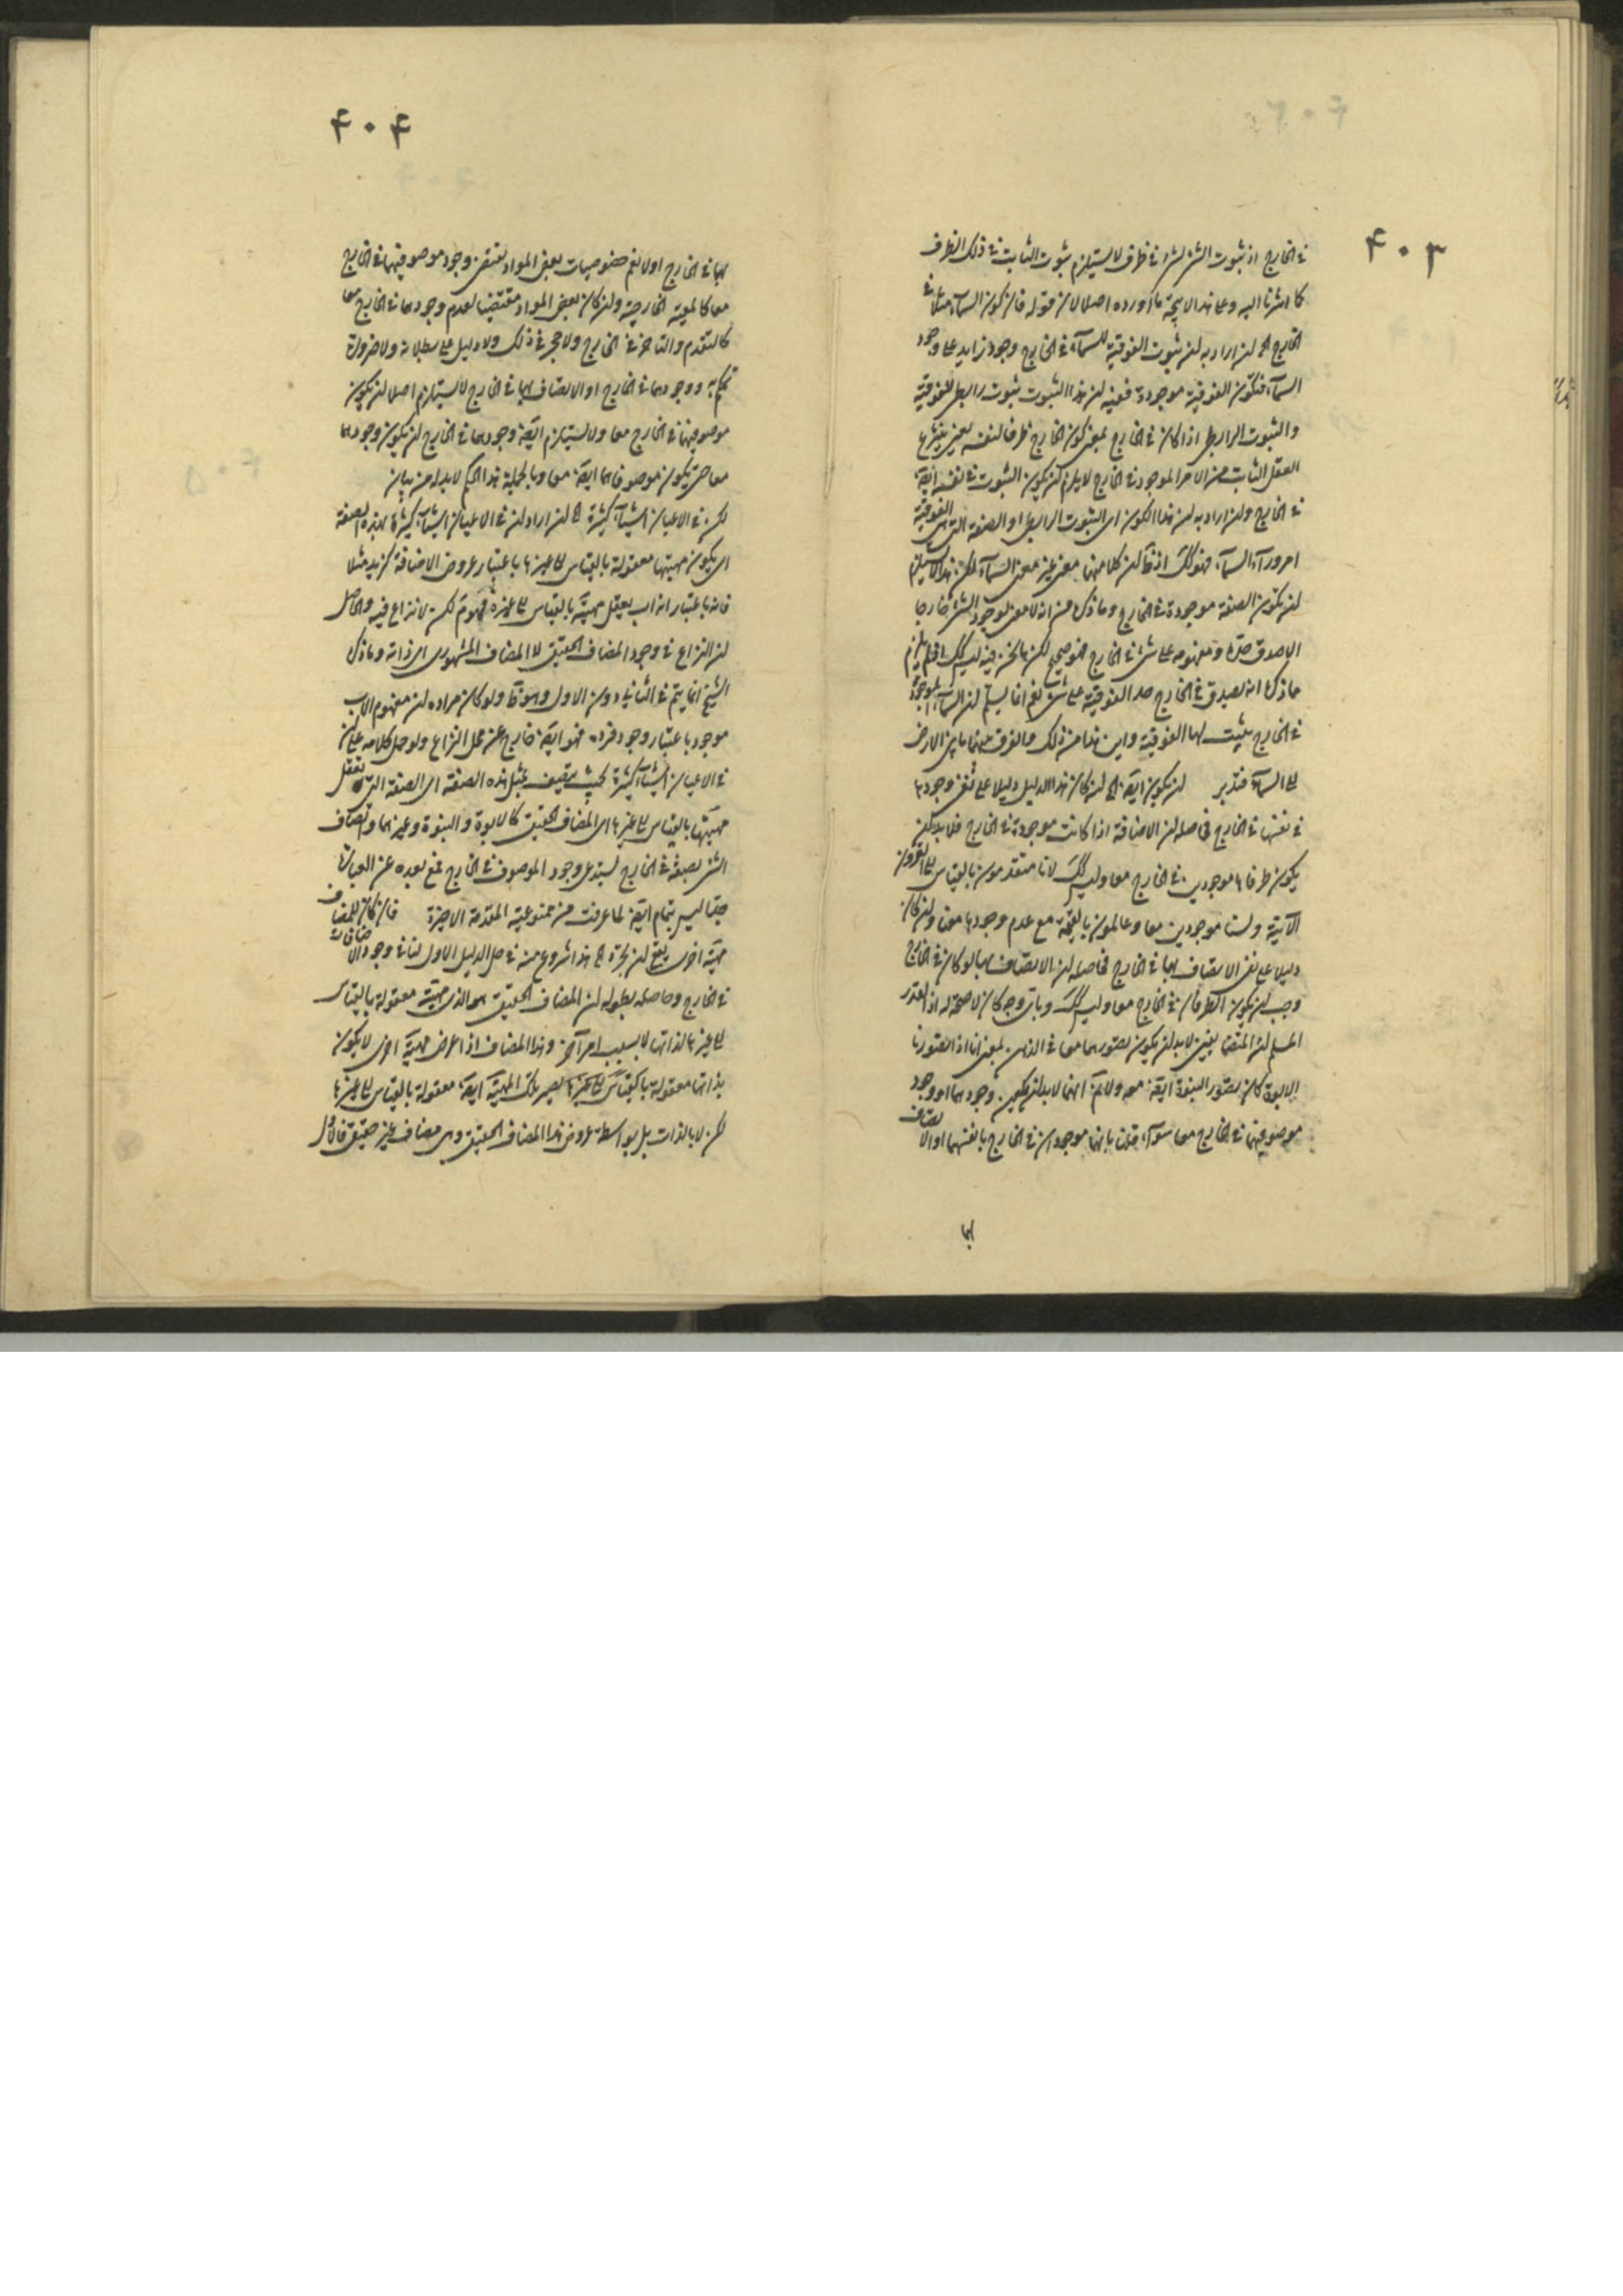 ۴۰۳
في الخارج اذ ثبوت الشئ لشئ في ظرف لا يستلزم ثبوت الثابت في ذلك الظرف
كما اشرنا اليه وعلى هذا لا يتجه ما اورده اصلا لان قوله فان كون السماء مثلا في
الخارج الخ ان اراد به ان ثبوت الفوقية للسماء في الخارج وجود زايد على وجود
السماء فتكون الفوقية موجودة ففيه ان هذا الثبوت ثبوت رابطي للفوقية
والثبوت الرابطي اذا كان في الخارج بمعنى كون الخارج ظرفا لنفسه بمعنى ينتزع
العقل الثابت من الامر الموجود في الخارج لا يلزم ان يكون الثبوت في نفسه ايضا
في الخارج وان اراد به ان هذا الكون اي الثبوت الرابطي او الصفة التي هي الفوقية
امر وراء السماء فهو كك اذ لكن كلا منهما معنى غير معنى السماء لكن هذا لا يستلزم
ان تكون الصفة موجودة في الخارج وما ذكره من انه لا معنى لوجود الشئ خارجا
الا صدق حده ومفهومه على شئ في الخارج فهو صحيح لكن ما نحن فيه ليس كك اذ لم يلزم
مما ذكره انه يصدق في الخارج حد الفوقية على شئ نعم انما يسلم ان السماء الموجودة
في الخارج يثبت لها الفوقية واين هذا من ذلك والفرق بينهما ما بين الارض
الى السماء فتدبر ان يكون ايضا الخ ان كان هذا الدليل دليلا على نفي وجودها
في نفسها في الخارج فحاصله ان الاضافة اذا كانت موجودة في الخارج فلا بد ان
يكون طرفاها موجودين في الخارج معا وليس كك لانا متقدمون بالقياس الى القرون
الآتية ولسنا موجودين معا وعالمون بالقيمة مع عدم وجودها معنا وان كان
دليلا على نفي الاتصاف بها في الخارج فحاصله ان الاتصاف بها لو كان في الخارج
وجب ان يكون الطرفان في الخارج معا وليس كك وباي وجه كان لا صحة له اذ القدر
المسلم ان المتضايفين لا بد ان يكون تصورهما معا في الذهن بمعنى انا اذا تصورنا
الابوة كان تصور البنوة ايضا معه ولا نم انهما لا بد ان يكون وجودهما او وجود
موصوفيهما في الخارج معا سواء قلنا بانهما موجودان في الخارج بانفسهما او الاتصاف
بها
۴۰۴
بها في الخارج او لا نعم خصوصيات بعض المواد تقتضي وجود موصوفيهما في الخارج
معا كالمعية الخارجية وان كان بعض المواد مقتضيا لعدم وجودهما في الخارج معا
كالتقدم والتاخر في الخارج ولا حجر في ذلك ولا دليل على بطلانه ولا ضرورة
تحكم به ووجودهما في الخارج او الاتصاف بها في الخارج لا يستلزم اصلا ان يكون
موصوفيهما في الخارج معا ولا يستلزم ايضا وجودهما في الخارج ان يكون وجودهما
معا حتى يكون موصوفاهما ايضا معا وبالجملة هذا الحكم لا بد له من بيان
لكن في الاعيان اشياء كثيرة الخ ان اراد ان في الاعيان اشياء كثيرة بهذه الصفة
اي يكون مهيتها معقولة بالقياس الى غيرها باعتبار عروض الاضافة كزيد مثلا
فانه باعتبار انه اب يعقل مهيته بالقياس الى غيره فهو مم لكن لا نزاع فيه والحاصل
ان النزاع في وجود المضاف الحقيقي لا المضاف المشهوري اي ذاته وما ذكره
الشيخ انما يتم في الثاني دون الاول وهو ظ ولو كان مراده ان مفهوم الاب
موجود باعتبار وجود فرده فهو ايضا خارج عن محل النزاع ولو حمل كلامه على ان
في الاعيان اشياء كثيرة بحيث يتصف بمثل هذه الصفة اي الصفة التي تعقل
مهيتها بالقياس الى غيرها اي المضاف الحقيقي كالابوة والبنوة وغيرهما واتصاف
الشئ بصفة في الخارج يستدعي وجود الموصوف في الخارج فمع بعده عن العبارة
جدا ليس بتمام ايضا لما عرفت من ممنوعية المقدمة الاخيرة فان كان للمضاف
مهية اخرى ينبغي ان نجرد الخ هذا شروع منه في حل الدليل الاول لنا في وجود الاضافات
في الخارج وحاصله بطوله ان المضاف الحقيقي هو الذي مهيته معقولة بالقياس
الى غيرها لذاتها لا بسبب امر آخر وهذا المضاف اذا عرض مهية اخرى لا يكون
بذاتها معقولة بالقياس الى غيرها يصير تلك المهية ايضا معقولة بالقياس الى غيرها
لكن لا بالذات بل بواسطة عروض هذا المضاف الحقيقي وهي مضاف غير حقيقي فالاول